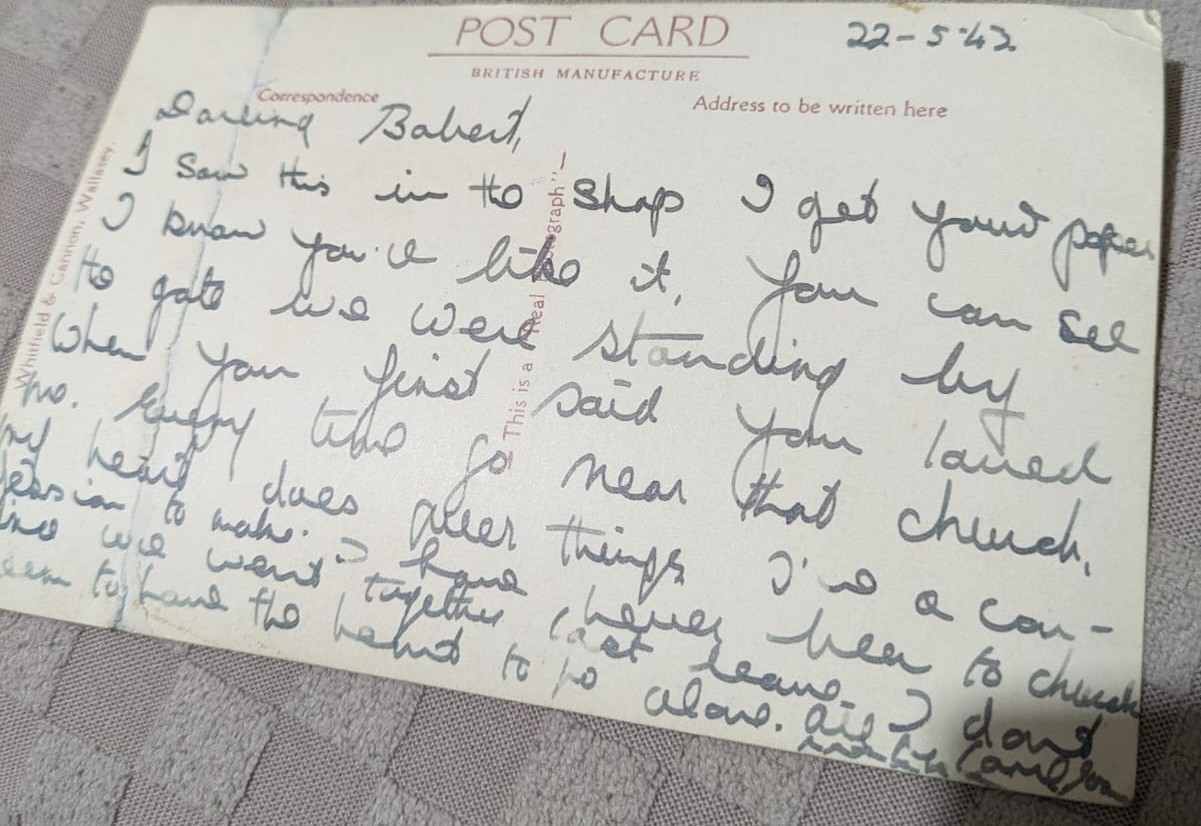 POST CARD
22-5-42
BRITISH MANUFACTURE
Correspondence
Address to be written here
Darling Babert,
I saw this in the shop I get your paper
I know you'll like it, You can see
the gate we were standing by
when you first said you loved
me. Every time go near that church,
my heart does queer things I've a con-
fession to make. I have never been to church
since we went together last leave. I don't
seem to have the heart to go alone. All my
love
Whitfield & Cannon, Wallasey.
"This is a Real Photograph"